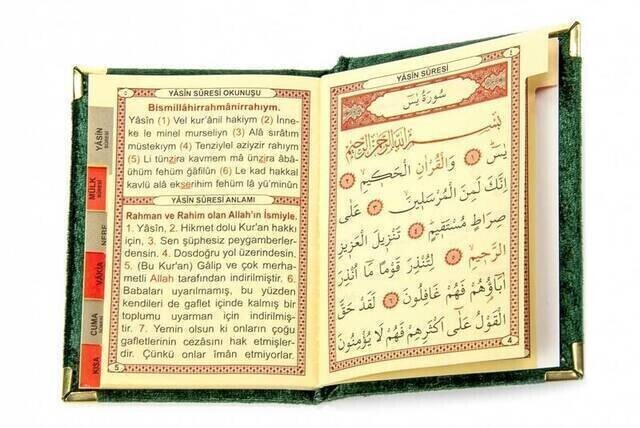 YÂSİN SÛRESİ OKUNUŞU
Bismillâhirrahmânirrahıym.
Yâsîn (1) Vel kur'ânil hakiym (2) İnne-
ke le minel murseliyn (3) Alâ sırâtım
müstekıym (4) Tenziylel aziyzir rahıym
(5) Li tünzira kavmem mâ ünzira âbâ-
ühüm fehüm ğâfilûn (6) Le kad hakkal
kavlü alâ ekserihim fehüm lâ yü'minûn
YÂSİN SÛRESİ ANLAMI
Rahman ve Rahim olan Allah'ın İsmiyle.
1. Yâsîn, 2. Hikmet dolu Kur'an hakkı
için, 3. Sen şüphesiz peygamberler-
densin. 4. Dosdoğru yol üzerindesin.
5. (Bu Kur'an) Gâlip ve çok merha-
metli Allah tarafından indirilmiştir. 6.
Babaları uyarılmamış, bu yüzden
kendileri de gaflet içinde kalmış bir
toplumu uyarman için indirilmiş-
tir. 7. Yemin olsun ki onların çoğu
gafletlerinin cezasını hak etmişler-
dir. Çünkü onlar îmân etmiyorlar.
5
YÂSİN
SÛRESİ
MÜLK
SÛRESİ
NEBE
VÂKIA
CUMA
KISA
YÂSİN SÛRESİ
سُورَةُ يٰسٓ
بِسْمِ اللّٰهِ الرَّحْمٰنِ الرَّحِيمِ
يٰسٓ ١ وَالْقُرْاٰنِ الْحَكِيمِ ٢
اِنَّكَ لَمِنَ الْمُرْسَلِينَ ٣ عَلٰى
صِرَاطٍ مُسْتَقِيمٍ ٤ تَنْزِيلَ الْعَزِيزِ
الرَّحِيمِ ٥ لِتُنْذِرَ قَوْمًا مَا اُنْذِرَ
اٰبَاؤُهُمْ فَهُمْ غَافِلُونَ ٦ لَقَدْ حَقَّ
الْقَوْلُ عَلٰى اَكْثَرِهِمْ فَهُمْ لَا يُؤْمِنُونَ
4